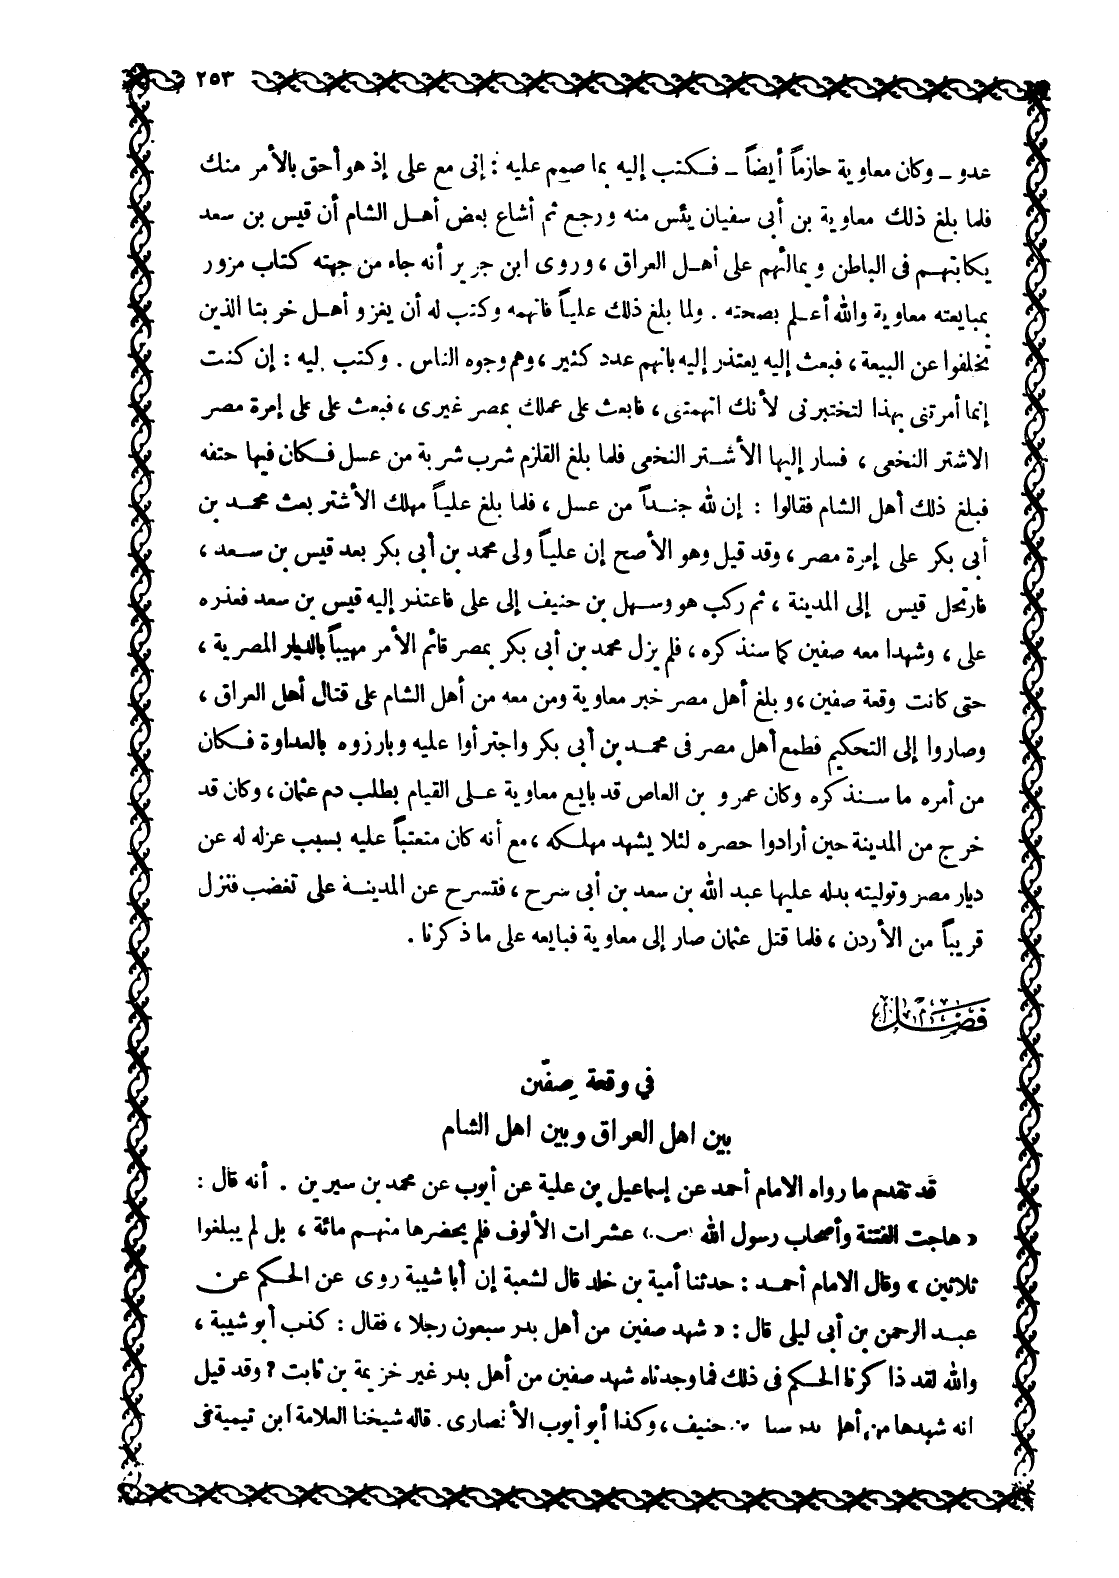 ٢٥٣
عدو ـ وكان معاوية حازماً أيضاً ـ فـكتب إليه بما صمم عليه : إنى مع على إذ هو أحق بالأمر منك
فلما بلغ ذلك معاوية بن أبى سفيان يئس منه ورجع ثم أشاع بعض أهـل الشام أن قيس بن سعد
يكاتبهـم فى الباطن ويمالئهم على أهـل العراق ، وروى ابن جرير أنه جاء من جهته كتاب مزور
بمبايعته معاوية والله أعـلم بصحته . ولما بلغ ذلك علياً فاتهمه وكتب له أن يغزو أهـل خربتا الذين
تخلفوا عن البيعة ، فبعث إليه يعتذر إليه بانهم عدد كثير ، وهم وجوه الناس . وكتب ليه : إن كنت
إنما أمرتنى بهذا لتختبرنى لأنك اتهمتنى ، فابعث على عملك بمصر غيرى ، فبعث على على إمرة مصر
الاشتر النخعى ، فسار إليها الأشـتر النخعى فلما بلغ القلزم شرب شربة من عسل فـكان فيها حتفه
فبلغ ذلك أهل الشام فقالوا : إن لله جنـداً من عسل ، فلما بلغ علياً مهلك الأشتر بعث محمـد بن
أبى بكر على إمرة مصر ، وقد قيل وهو الأصح إن علياً ولى محمد بن أبى بكر بعد قيس بن سـعد ،
فارتحل قيس إلى المدينة ، ثم ركب هو وسـهل بن حنيف إلى على فاعتذر إليه قيس بن سعد فعذره
على ، وشهدا معه صفين كما سنذكره ، فلم يزل محمد بن أبى بكر بمصر قائم الأمر مهيباً بالديار المصرية ،
حتى كانت وقعة صفين ، و بلغ أهل مصر خبر معاوية ومن معه من أهل الشام على قتال أهل العراق ،
وصاروا إلى التحكيم فطمع أهل مصر فى محمـد بن أبى بكر واجترأوا عليه وبارزوه بالعداوة فـكان
من أمره ما سـنذكره وكان عمرو بن العاص قد بايع معاوية عـلى القيام بطلب دم عثمان ، وكان قد
خرج من المدينة حين أرادوا حصره لئلا يشهد مهلـكه ، مع أنه كان متعتباً عليه بسبب عزله له عن
ديار مصر وتوليته بدله عليها عبد الله بن سعد بن أبى سرح ، فتسرح عن المدينـة على تغضب فنزل
قريباً من الأردن ، فلما قتل عثمان صار إلى معاوية فبايعه على ما ذكرنا .
فصل
في وقعة صفّين
بين اهل العراق وبين اهل الشام
قد تقدم ما رواه الامام أحمد عن إسماعيل بن علية عن أيوب عن محمد بن سيرين . أنه قال :
« هاجت الفتنة وأصحاب رسول الله (ص) عشرات الألوف فلم يحضرها منهـم مائة ، بل لم يبلغوا
ثلاثين » وقال الامام أحمـد : حدثنا أمية بن خلد قال لشعبة إن أبا شيبة روى عن الحكم عن
عبـد الرحمن بن أبى ليلى قال : « شهد صفين من أهل بدر سبعون رجلا ، فقال : كذب أبو شيبة ،
والله لقد ذاكرنا الحـكم فى ذلك فما وجدناه شهد صفين من أهل بدر غير خزيمة بن ثابت ? وقد قيل
انه شهدها من أهل بدر حنيف ، وكذا أبو أيوب الأنصارى . قاله شيخنا العلامة ابن تيمية فى